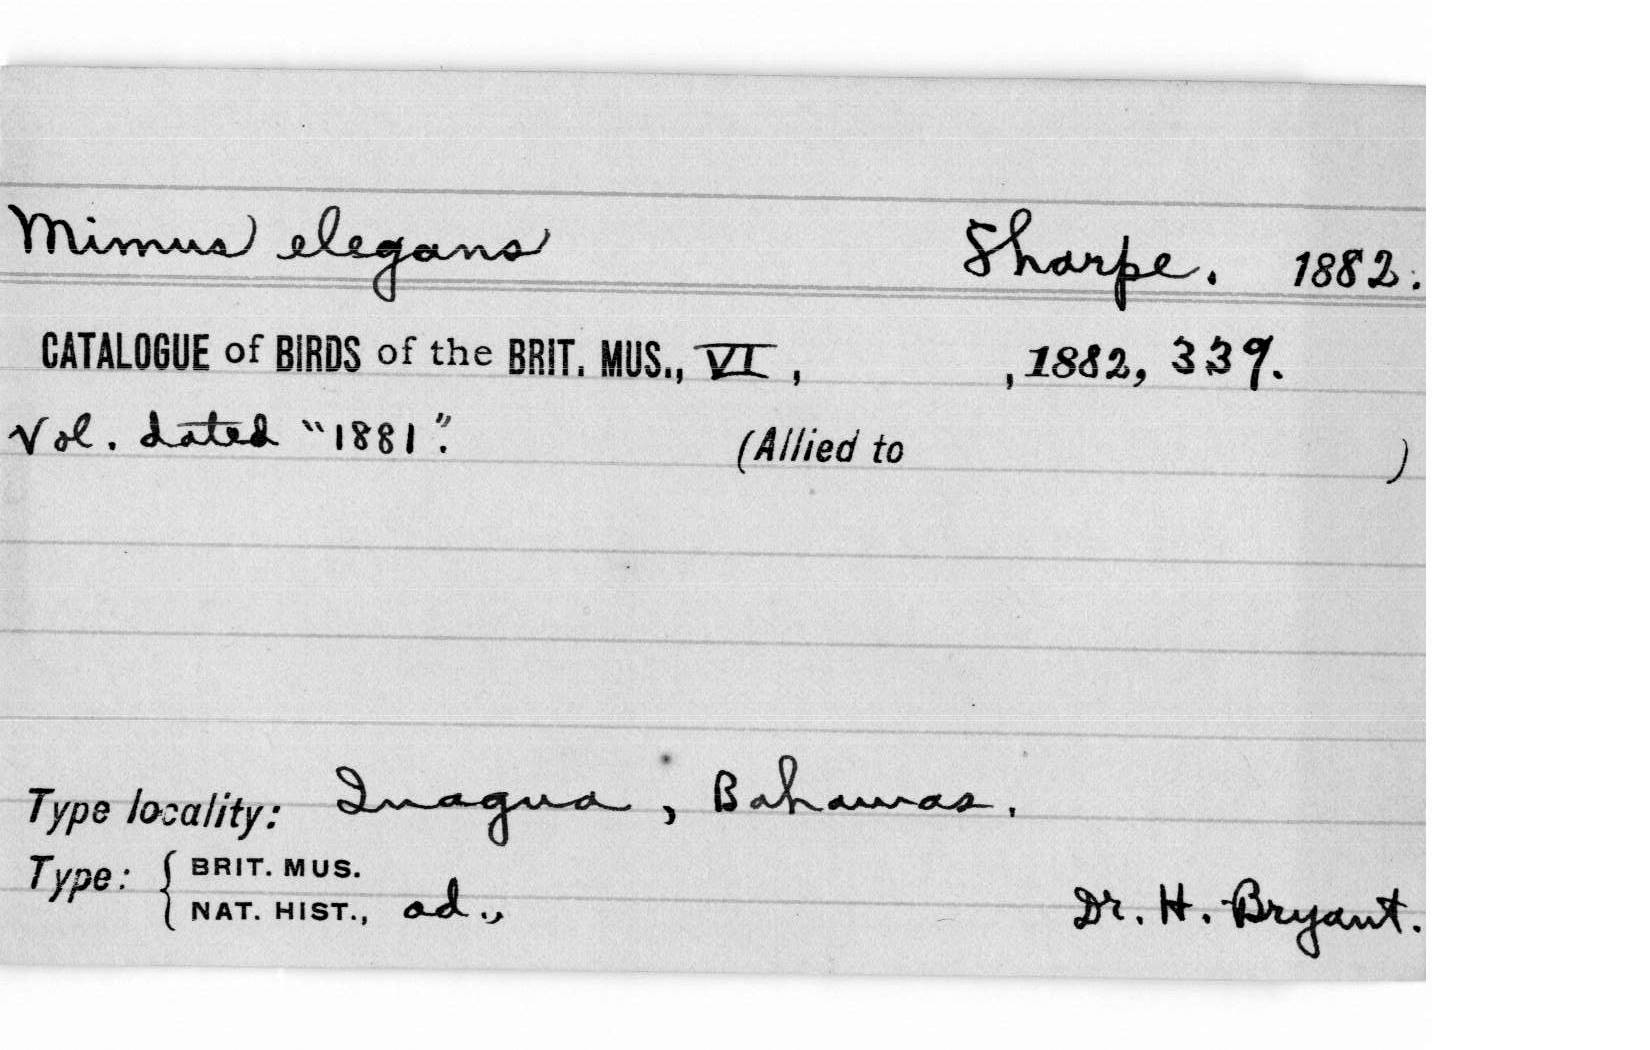 Mimus elegans Sharpe. 1882.
CATALOGUE of BIRDS of the BRIT. MUS., VI, , 1882, 339.
Vol. dated "1881". (Allied to )
Type locality: Inagua, Bahamas.
Type: { BRIT. MUS.
NAT. HIST., ad., Dr. H. Bryant.